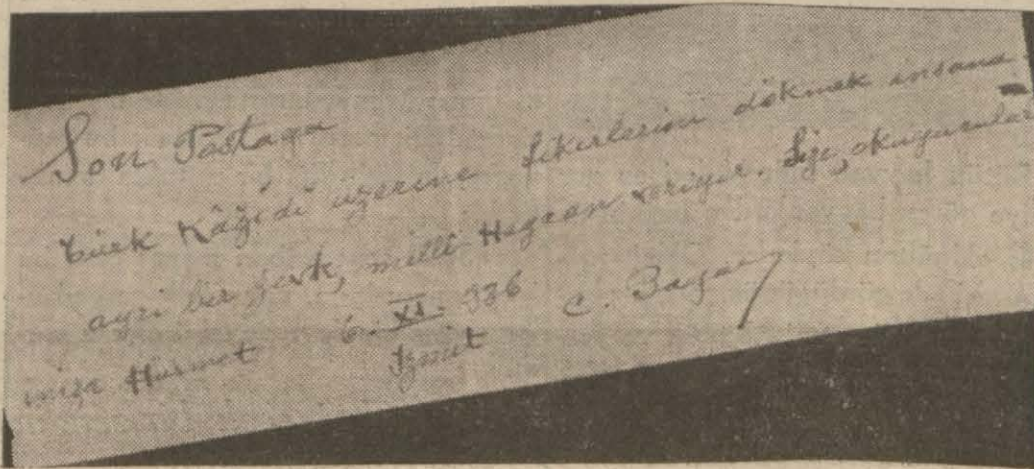 Son Postaya
Türk Kâğıdı üzerine fikirlerini dökmek insana
ayrı bir zevk, millî Heyecan veriyor. Size, okuyucular
ınıza Hürmet 6. XI. 936
İzmit C. Bayar